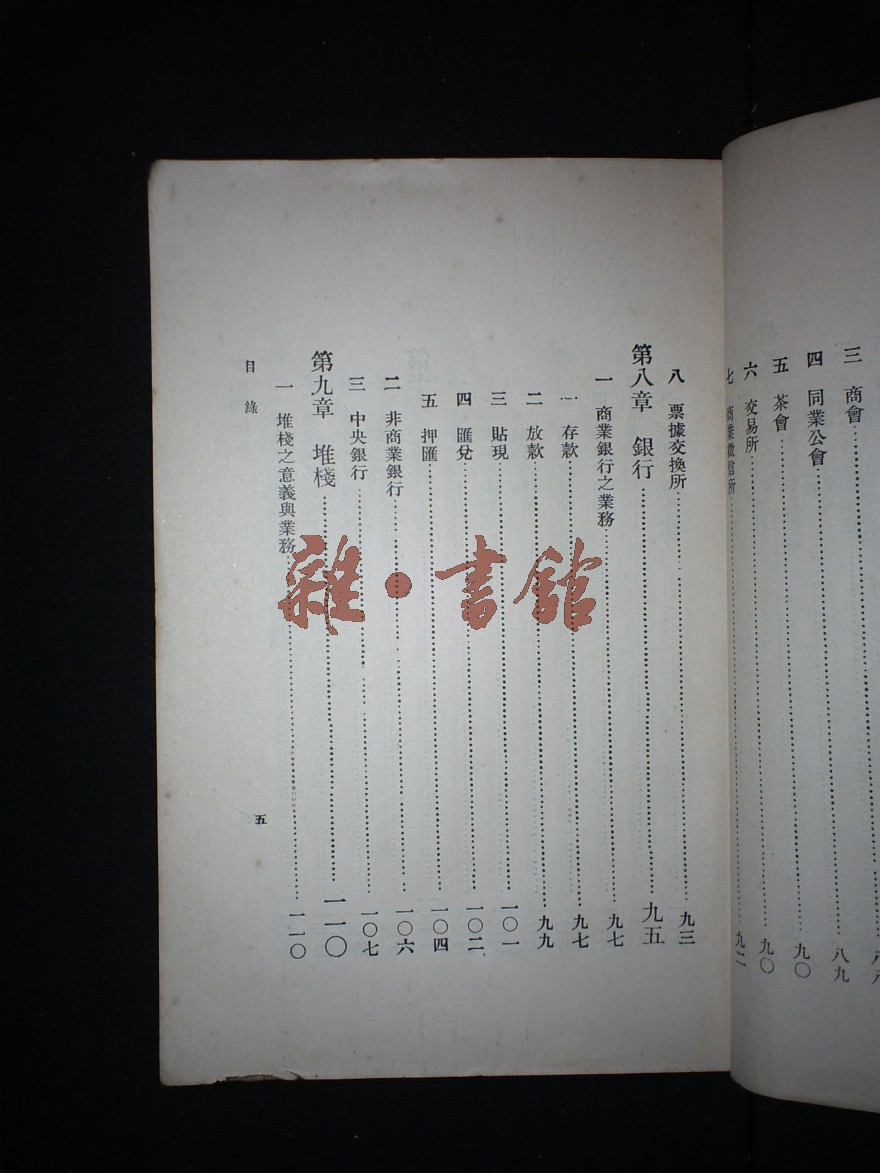 三 商會 八八
四 同業公會 八九
五 茶會 九〇
六 交易所 九〇
七 商業徵信所 九二
八 票據交換所 九三
第八章 銀行 九五
一 商業銀行之業務 九七
一 存款 九七
二 放款 九九
三 貼現 一〇一
四 匯兌 一〇二
五 押匯 一〇四
二 非商業銀行 一〇六
三 中央銀行 一〇七
第九章 堆棧 一一〇
一 堆棧之意義與業務 一一〇
目錄
五
雜·書館